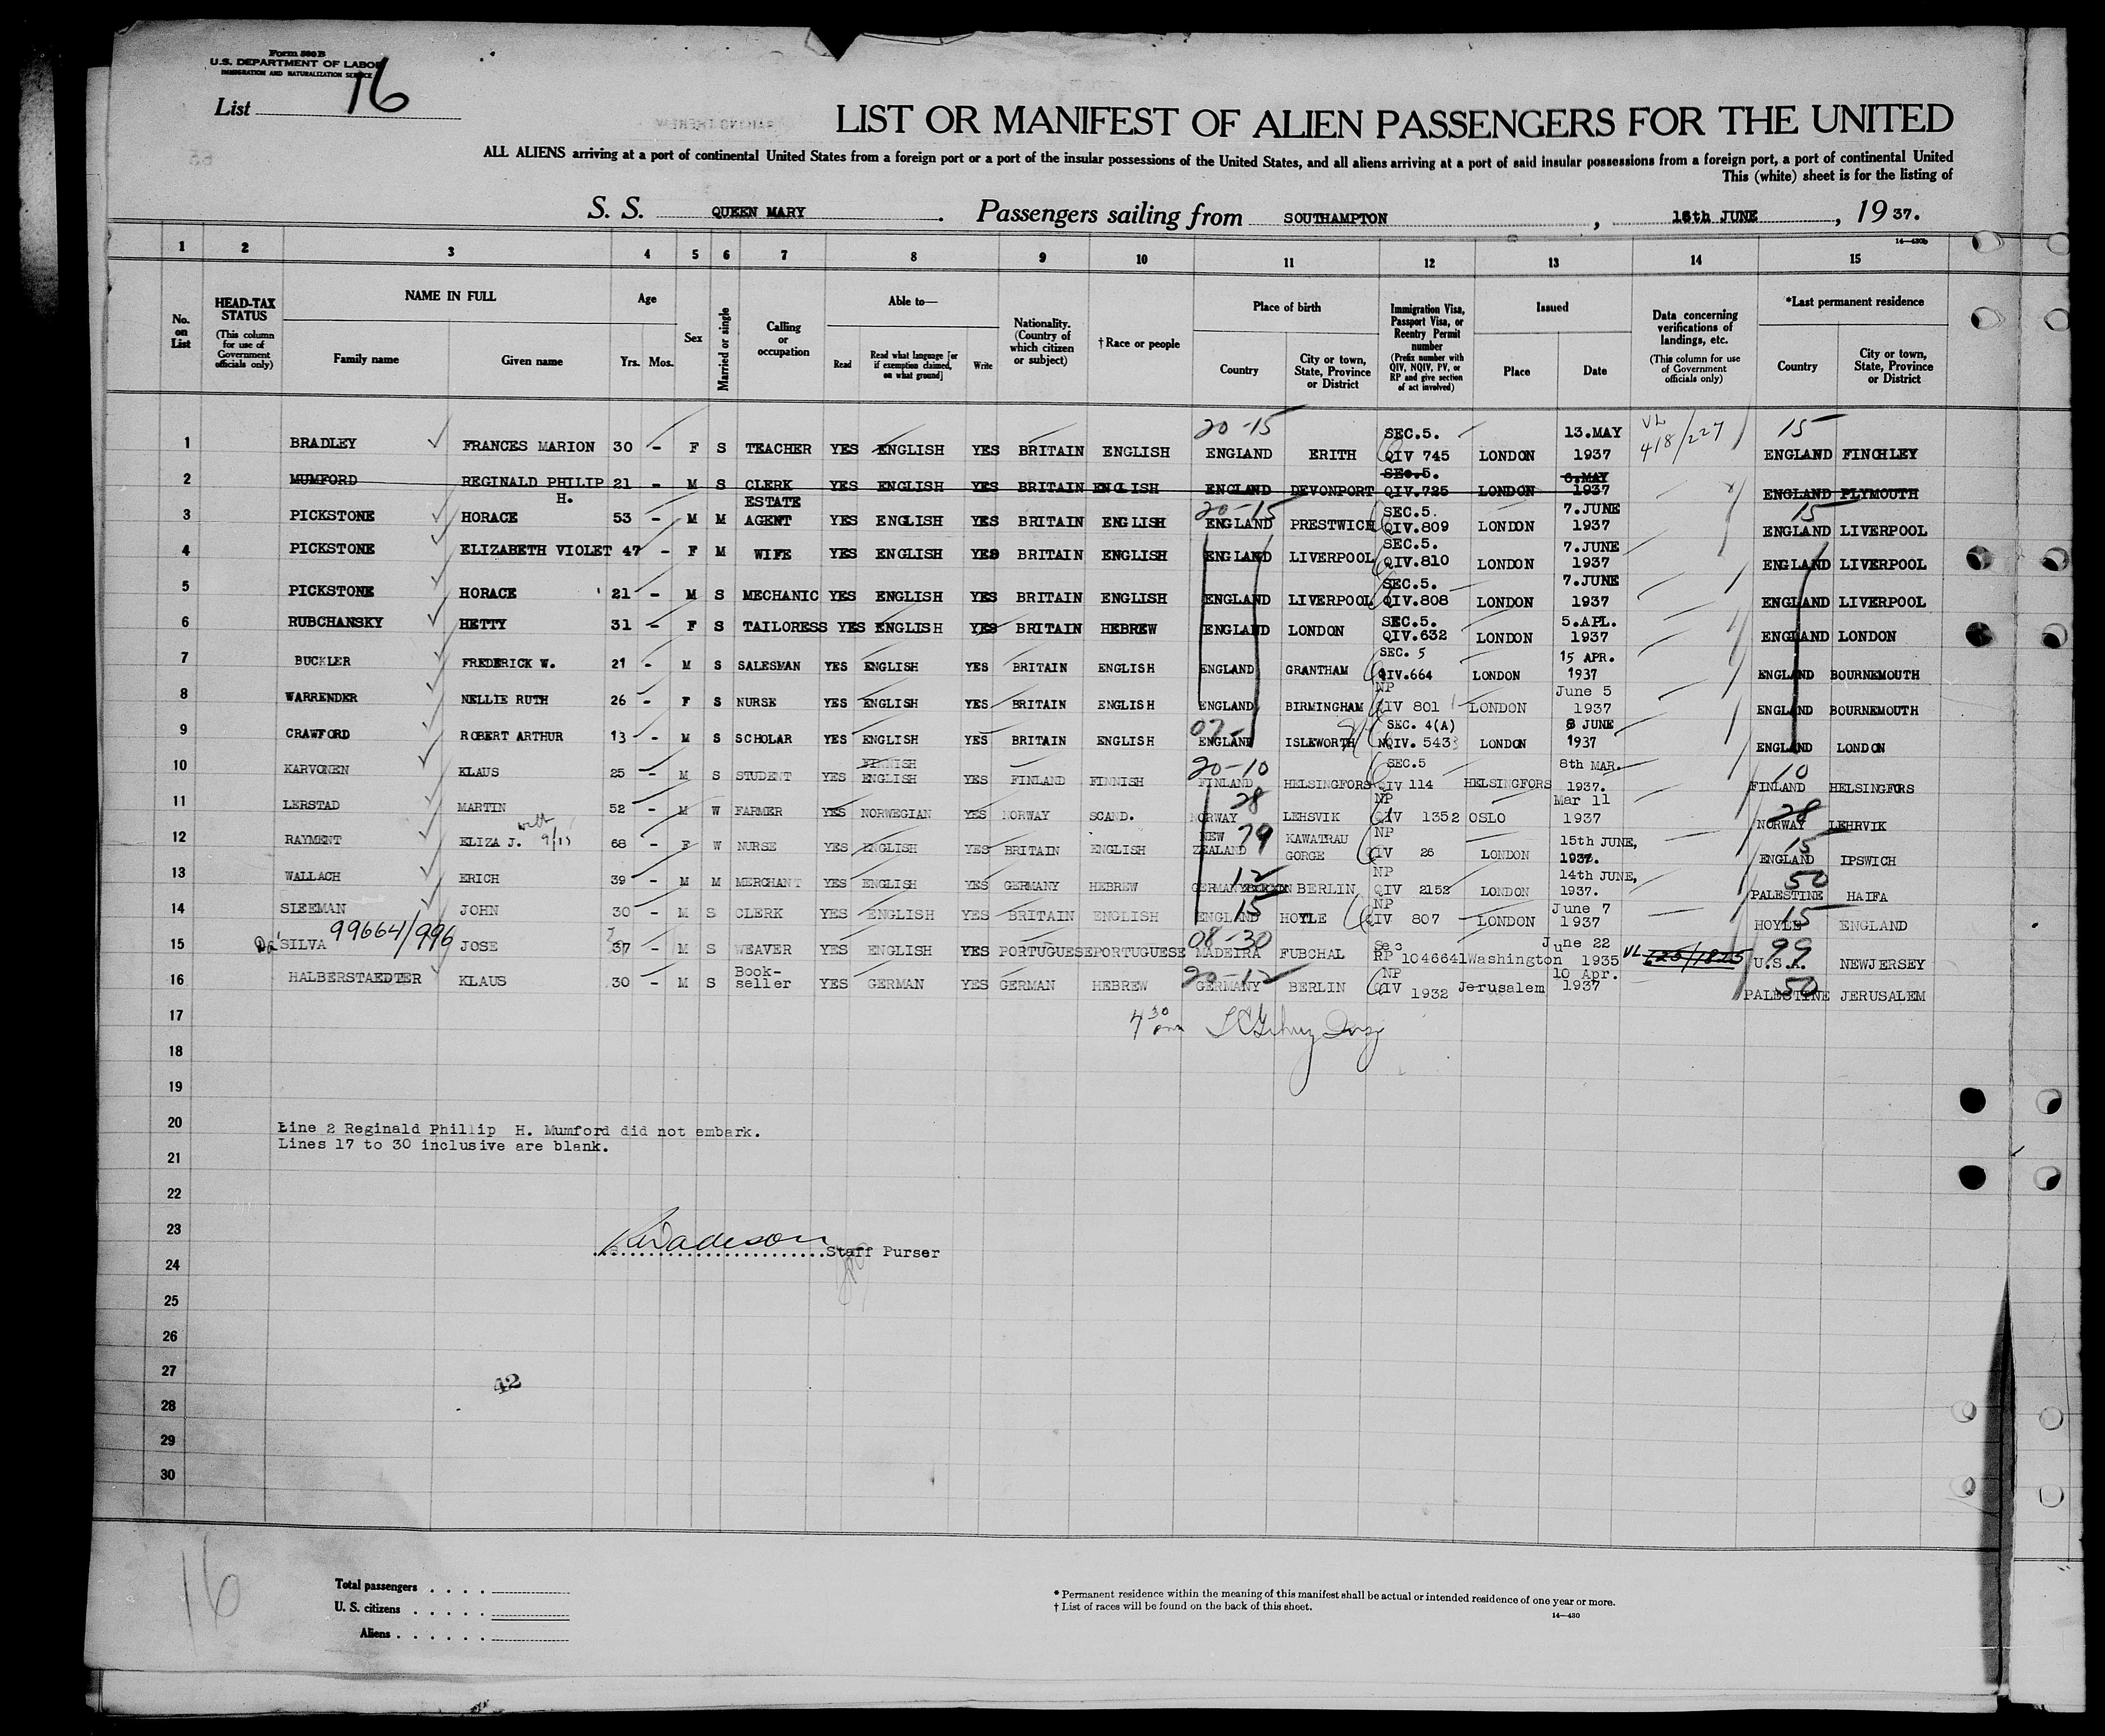 Form 500 B
U.S. DEPARTMENT OF LABOR
IMMIGRATION AND NATURALIZATION SERVICE
List 16
LIST OR MANIFEST OF ALIEN PASSENGERS FOR THE UNITED
ALL ALIENS arriving at a port of continental United States from a foreign port or a port of the insular possessions of the United States, and all aliens arriving at a port of said insular possessions from a foreign port, a port of continental United
This (white) sheet is for the listing of
S. S. QUEEN MARY. Passengers sailing from SOUTHAMPTON, 16th JUNE, 19 37.
14—430b
1 2 3 4 5 6 7 8 9 10 11 12 13 14 15
No. on List
HEAD-TAX STATUS (This column for use of Government officials only)
NAME IN FULL Family name Given name
Age Yrs. Mos.
Sex
Married or single
Calling or occupation
Able to— Read Read what language [or if exemption claimed, on what ground] Write
Nationality. (Country of which citizen or subject)
†Race or people
Place of birth Country City or town, State, Province or District
Immigration Visa, Passport Visa, or Reentry Permit number (Prefix number with QIV, NQIV, PV, or RP and give section of act involved)
Issued Place Date
Data concerning verifications of landings, etc. (This column for use of Government officials only)
*Last permanent residence Country City or town, State, Province or District
20-15 SEC.5. 13.MAY VL 418/227 15
1 BRADLEY FRANCES MARION 30 - F S TEACHER YES ENGLISH YES BRITAIN ENGLISH ENGLAND ERITH QIV 745 LONDON 1937 ENGLAND FINCHLEY
SEC.5. 6.MAY
2 MUMFORD REGINALD PHILIP H. 21 - M S CLERK YES ENGLISH YES BRITAIN ENGLISH ENGLAND DEVONPORT QIV.725 LONDON 1937 ENGLAND PLYMOUTH
ESTATE 20-15 SEC.5. 7.JUNE 15
3 PICKSTONE HORACE 53 - M M AGENT YES ENGLISH YES BRITAIN ENGLISH ENGLAND PRESTWICH QIV.809 LONDON 1937 ENGLAND LIVERPOOL
SEC.5. 7.JUNE
4 PICKSTONE ELIZABETH VIOLET 47 - F M WIFE YES ENGLISH YES BRITAIN ENGLISH ENGLAND LIVERPOOL QIV.810 LONDON 1937 ENGLAND LIVERPOOL
SEC.5. 7.JUNE
5 PICKSTONE HORACE 21 - M S MECHANIC YES ENGLISH YES BRITAIN ENGLISH ENGLAND LIVERPOOL QIV.808 LONDON 1937 ENGLAND LIVERPOOL
SEC.5. 5.APL.
6 RUBCHANSKY HETTY 31 - F S TAILORESS YES ENGLISH YES BRITAIN HEBREW ENGLAND LONDON QIV.632 LONDON 1937 ENGLAND LONDON
SEC. 5 15 APR.
7 BUCKLER FREDERICK W. 21 - M S SALESMAN YES ENGLISH YES BRITAIN ENGLISH ENGLAND GRANTHAM QIV.664 LONDON 1937 ENGLAND BOURNEMOUTH
NP June 5
8 WARRENDER NELLIE RUTH 26 - F S NURSE YES ENGLISH YES BRITAIN ENGLISH ENGLAND BIRMINGHAM QIV 801 LONDON 1937 ENGLAND BOURNEMOUTH
07- SEC. 4(A) 8 JUNE
9 CRAWFORD ROBERT ARTHUR 13 - M S SCHOLAR YES ENGLISH YES BRITAIN ENGLISH ENGLAND ISLEWORTH NQIV. 543 LONDON 1937 ENGLAND LONDON
FINNISH 20-10 SEC.5 8th MAR. 10
10 KARVONEN KLAUS 25 - M S STUDENT YES ENGLISH YES FINLAND FINNISH FINLAND HELSINGFORS QIV 114 HELSINGFORS 1937. FINLAND HELSINGFORS
28 NP Mar 11 28
11 LERSTAD MARTIN 52 - M W FARMER YES NORWEGIAN YES NORWAY SCAND. NORWAY LEHSVIK QIV 1352 OSLO 1937 NORWAY LEHRVIK
9/15 NEW 79 KAWATRAU NP 15th JUNE, 15
12 RAYMENT ELIZA J. 68 - F W NURSE YES ENGLISH YES BRITAIN ENGLISH ZEALAND GORGE QIV 26 LONDON 1937. ENGLAND IPSWICH
12 NP 14th JUNE, 50
13 WALLACH ERICH 39 - M M MERCHANT YES ENGLISH YES GERMANY HEBREW GERMANY BERLIN QIV 2152 LONDON 1937. PALESTINE HAIFA
15 NP June 7 15
14 SLEEMAN JOHN 30 - M S CLERK YES ENGLISH YES BRITAIN ENGLISH ENGLAND HOYLE QIV 807 LONDON 1937 HOYLE ENGLAND
99664/996 08-30 Sec 3 June 22 VL 99
15 Da SILVA JOSE 37 - M S WEAVER YES ENGLISH YES PORTUGUESE PORTUGUESE MADEIRA FUBCHAL RP 1046641 Washington 1935 U.S.A. NEWJERSEY
Book- 20-12 NP 10 Apr. 50
16 HALBERSTAEDTER KLAUS 30 - M S seller YES GERMAN YES GERMAN HEBREW GERMANY BERLIN QIV 1932 Jerusalem 1937 PALESTINE JERUSALEM
17 4 30 pm
18
19
20
Line 2 Reginald Phillip H. Mumford did not embark.
Lines 17 to 30 inclusive are blank.
21
22
23
Staff Purser
24
25
26
27
42
28
29
30
16
Total passengers . . . .
U. S. citizens . . . . .
Aliens . . . . . .
* Permanent residence within the meaning of this manifest shall be actual or intended residence of one year or more.
† List of races will be found on the back of this sheet.
14—430